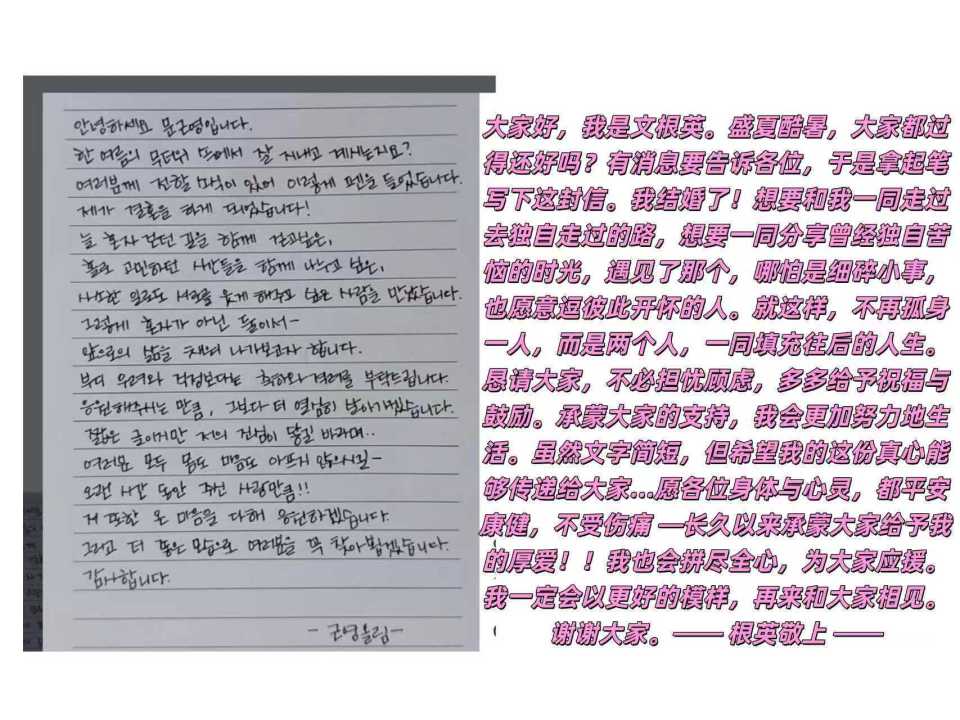 안녕하세요 문근영입니다.
한 여름의 무더위 속에서 잘 지내고 계시는지요?
여러분께 전할 소식이 있어 이렇게 펜을 들었습니다.
제가 결혼을 하게 되었습니다!
늘 혼자 걷던 길을 함께 걷고싶은,
홀로 고민하던 시간들을 함께 나누고 싶은,
사소한 일로도 서로를 웃게 해주고 싶은 사람을 만났습니다.
그렇게 혼자가 아닌 둘이서-
앞으로의 삶을 채워 나가보고자 합니다.
부디 우려와 걱정보다는 축하와 격려를 부탁드립니다.
응원해주시는 만큼, 그보다 더 열심히 살아가겠습니다.
짧은 글이지만 저의 진심이 닿길 바라며..
여러분 모두 몸도 마음도 아프지 않으시길-
오랜 시간 동안 주신 사랑만큼!!
저 또한 온 마음을 다해 응원하겠습니다.
그리고 더 좋은 모습으로 여러분을 꼭 찾아뵙겠습니다.
감사합니다.
- 근영올림-
大家好，我是文根英。盛夏酷暑，大家都过
得还好吗？有消息要告诉各位，于是拿起笔
写下这封信。我结婚了！想要和我一同走过
去独自走过的路，想要一同分享曾经独自苦
恼的时光，遇见了那个，哪怕是细碎小事，
也愿意逗彼此开怀的人。就这样，不再孤身
一人，而是两个人，一同填充往后的人生。
恳请大家，不必担忧顾虑，多多给予祝福与
鼓励。承蒙大家的支持，我会更加努力地生
活。虽然文字简短，但希望我的这份真心能
够传递给大家...愿各位身体与心灵，都平安
康健，不受伤痛 —长久以来承蒙大家给予我
的厚爱！！我也会拼尽全心，为大家应援。
我一定会以更好的模样，再来和大家相见。
谢谢大家。—— 根英敬上 ——